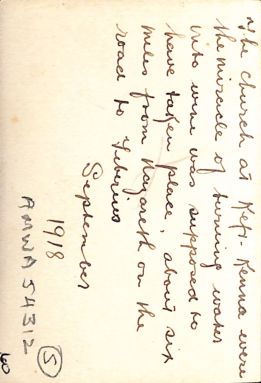 The church at Kefr-Kenna were
the miracle of turning water
into wine was supposed to
have taken place, about six
miles from Nazareth on the
road to Tiberius
September
1918
AMWA 54312
5
60